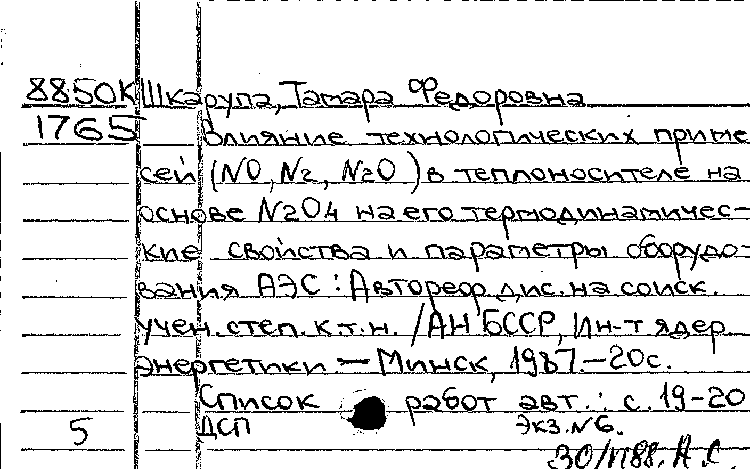 8850К Шкарупа, Тамара Федоровна
1765 Влияние технологических приме
сей (NO, N2, N2O) в теплоносителе на
основе N2O4 на его термодинамичес-
кие свойства и параметры оборудо-
вания АЭС : Автореф. дис. на соиск.
учен. степ. к.т.н. / АН БССР, Ин-т ядер
энергетики — Минск, 1987. — 20 с.
Список работ авт. : с. 19-20
5 ДСП Экз. N6.